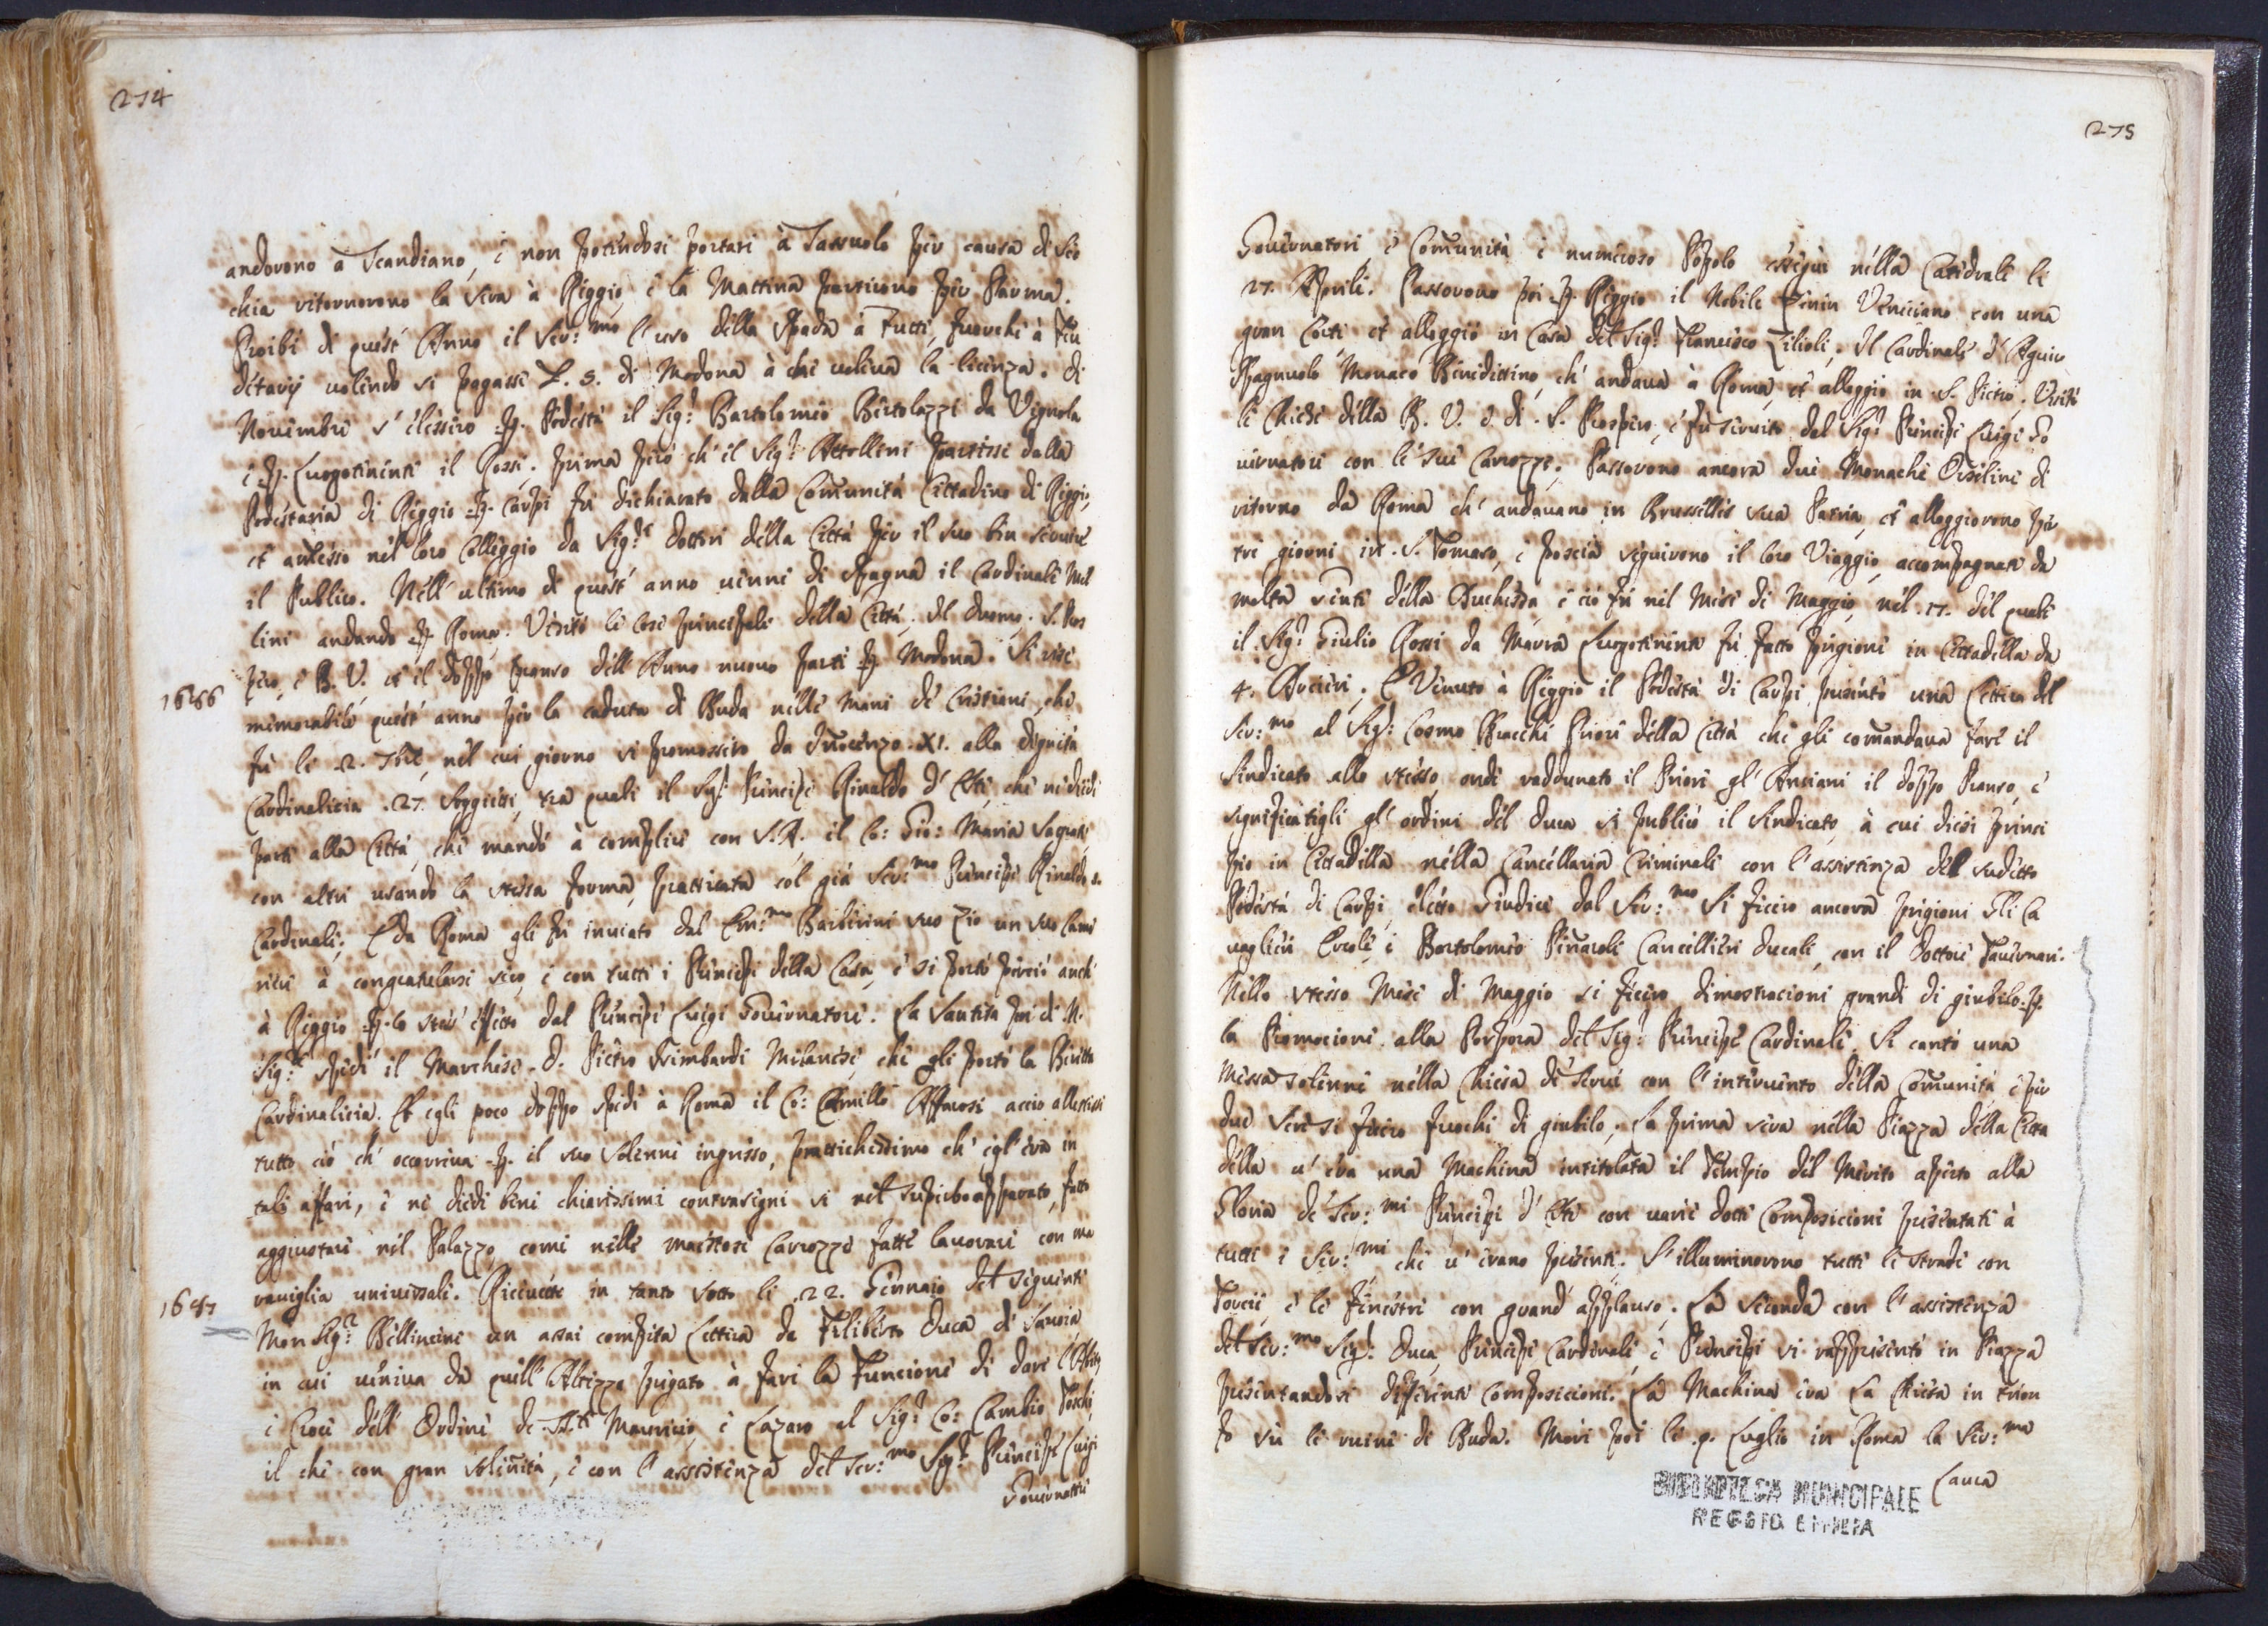 274
andorono a Scandiano, è non potendosi portare à Sassuolo per causa di Sec
chia ritornorono la sera à Reggio è la Mattina partirono per Parma.
Proibì di quest' Anno il Ser:mo l'uso della Spada à Tutti, fuorchè à Feu
detarij uolendo si pagasse L. 5. di Modona à chi uoleua la licenza. Di
Nouembre s' elessero p. Podestà il Sig.r Bartolomeo Bertolazzi da Vignola
è p. Luogotenente il Rossi. Prima però ch' il Sig.r partisse dalla
Podestaria di Reggio p. Carpi fu dichiarato dalla Comunità Cittadino di Reggio,
et amesso nel loro Colleggio da Sig.ri Dottori della Città per il suo ben seruire
il Publico. Nell' ultimo di quest' anno uenne di Spagna il Cardinale Mel
lini andando p. Roma. Visitò le cose principali della Città. Il Duomo. S. Pros
pero, è B. V. et il doppo pranso dell Anno nuouo partì p. Modona. Si rese
1686
memorabile quest' anno per la caduta di Buda nelle mani de Cristiani, che
fu li 2. 7bre, nel cui giorno si promossero da Innocenzo XI. alla dignità
Cardinalicia .27. soggietti, tra quali il Sig.r Principe Rinaldo d' Este, che ne diede
parte alla Città, che mandò à complire con S.A. il Co: Gio: Maria Sagrati,
con altri usando la stessa forma, pratticata col già Ser:mo Principe Rinaldo s.
Cardinale. E da Roma gli fù inuiato dal Em:mo Barberini suo Zio un suo Came
riere à congratularsi seco, è con tutti i Principi della Casa, è si portò perciò anche
à Reggio p. lo stess' effetto dal Principe Luigi Gouernatore. La Santità poi di N.
Sig.re spedì il Marchese D. Pietro Isimbardi Milanese, che gli portò la Biretta
Cardinalicia. Et egli poco doppo spedì à Roma il Co: Camillo Affarosi acciò allestisse
tutto ciò ch' occorreua p. il suo solenne ingresso, pratichissimo ch' egl' era in
tali affari, è ne diede bene chiarissimi contrasegni si nel superbo apparato, fatto
aggiustare nel Palazzo, come nelle maestose Carrozze fatte lauorare con ma
rauiglia uniuersale. Riceuette in tanto sotto li 22. Gennaio del seguente
1687
Mon Sig.r Bellincini un assai compita lettera da Filiberto Duca di Sauoia
in cui ueniua da quell' Altezza pregato à fare la Funcione di dare l' Abito,
è Croce dell' Ordine de S.ti Mauricio, è Lazaro al Sig.r Co: Cambio Toschi,
il che con gran solenità, è con l' assistenza del Ser:mo Sig.r Principe Luigi
Gouernatore
275
Gouernatore, è Comunità è numeroso Popolo esseguì nella Catedrale li
27. Aprile. Passorono poi p. Reggio il Nobile Zenin Veneciano con una
gran Corte et alloggiò in Casa del Sig.r Francesco Zilioli. Il Cardinale d' Aguir
Spagnuolo Monaco Benedettino, ch' andaua à Roma, et alloggiò in S. Pietro. Visitò
le Chiese della B. V. è di S. Prospero, è fù seruito dal Sig.r Principe Luigi Go
uernatore con le sue Carrozze. Passorono ancora due Monache Orseline di
ritorno da Roma ch' andauano in Brusselles sua Patria, et alloggiorono per
tre giorni in S. Tomaso, è poscia seguirono il loro Viaggio, accompagnate da
molta Gente della Duchessa, è ciò fù nel Mese di Maggio, nel 17. del quale
il Sig.r Giulio Rossi da Massa Luogotenente fù fatto prigione in Cittadella da
4. Arcieri. E Venuto à Reggio il Podestà di Carpi presentò una lettera del
Ser:mo al Sig.r Cosmo Bracchi Priore della Città che gli comandaua fare il
Sindicato allo stesso, onde raddunato il Priore gl' Anciani il doppo Pranso, è
significatigli gl' ordini del Duca si publicò il Sindicato, à cui diessi princi
pio in Cittadella nella Cancellaria Criminale con l' assistenza del sudetto
Podestà di Carpi, eletto Giudice dal Ser:mo Si fecero ancora prigioni Gli Ca
uaglieri Ercole, è Bartolomeo Pinaroli Cancellieri Ducali, con il Dottore Tauernari.
Nello stesso Mese di Maggio si fecero dimostracioni grandi di giubilo p.
la Promocione alla Porpora del Sig.r Principe Cardinale. Si cantò una
Messa solenne nella Chiesa de Serui con l' interuento della Comunità, è per
due sere si fecero fuochi di giubilo. La prima sera nella Piazza della Citta
della u' era una Machina intitolata il Tempio del Merito aperto alla
Gloria de Ser:mi Principi d' Este con uarie dotte Composicioni presentate à
tutti i Ser:mi che u' erano presenti. S' illuminorono tutte le strade con
Torcie, è le finestre con grand' applauso. La seconda con l' assistenza
del Ser:mo Sig.r Duca, Principe Cardinale, è Principi si rappresentò in Piazza
presentandosi differenti Composicioni. La Machina era La Chiesa in trion
fo sù le ruine di Buda. Morì poi li 9. Luglio in Roma la Ser:ma
Laura
BIBLIOTECA MUNICIPALE
REGGIO EMILIA